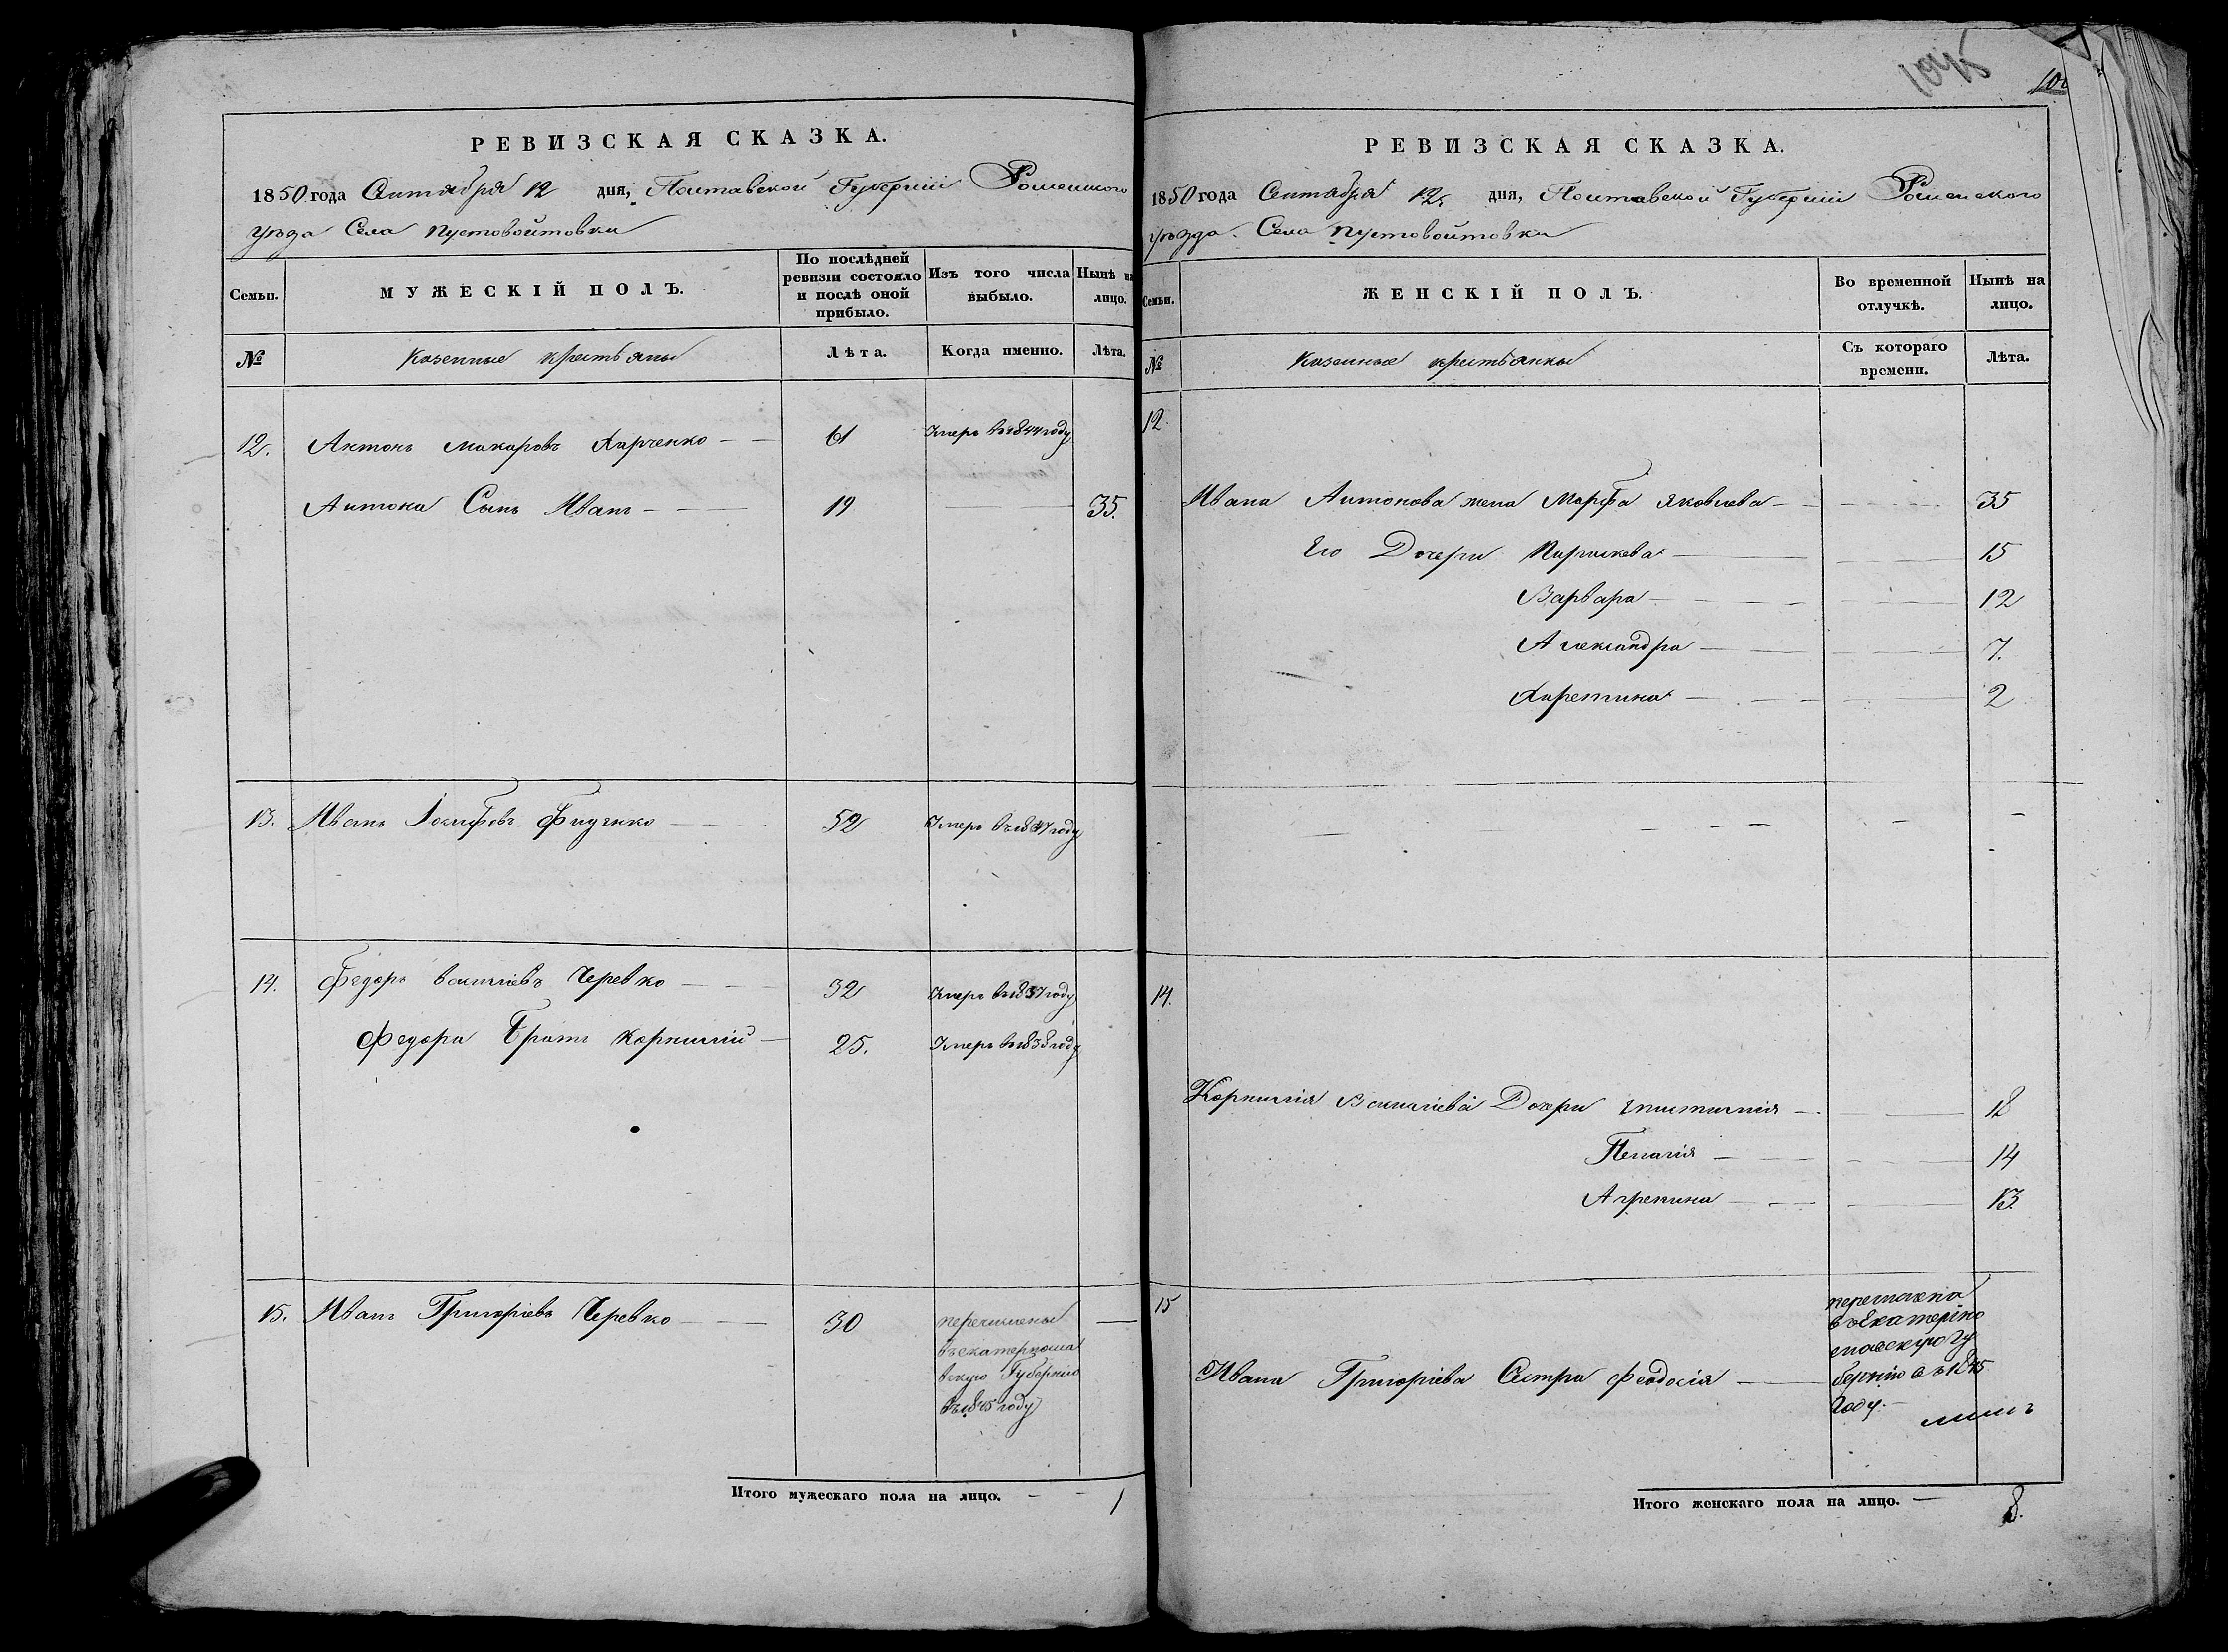 РЕВИЗСКАЯ СКАЗКА.
1850 года Сентября 12 дня, Полтавской Губерніи Роменского
уѣзда Села Пустовойтовки
Семьи.
МУЖЕСКІЙ ПОЛЪ.
По послѣдней
ревизіи состояло
и послѣ оной
прибыло.
Изъ того числа
выбыло.
Нынѣ на
лицо.
№
Казенные крестьяны
Лѣта.
Когда именно.
Лѣта.
12. Антонъ Макаровъ Харченко 61 Умеръ въ 1844 году
Антона Сынъ Иванъ 19 35.
13. Иванъ Іосифовъ 52 Умеръ въ 1847 году
14. Федоръ Василіевъ Черевко 32 Умеръ въ 1837 году
Федора Братъ Корнилій 25. Умеръ въ 1838 году
15. Иванъ Григоріевъ Черевко 30 перечислены
въ екатеринославскую Губернію
въ 1845 году
Итого мужескаго пола на лицо. 1
1045
РЕВИЗСКАЯ СКАЗКА.
1850 года Сентября 12 дня, Полтавской Губерніи Роменского
уѣзда. Села Пустовойтовки
Семьи.
ЖЕНСКІЙ ПОЛЪ.
Во временной
отлучкѣ.
Нынѣ на
лицо.
№
Казенные крестьянки
Съ котораго
времени.
Лѣта.
12.
Ивана Антонова жена Марфа Яковлева 35
Его Дочери Параскева 15
Варвара 12
Александра 7.
Харетина 2
14.
Корнилія Василіева Дочери Епистилія 18
Пелагія 14
Агрепина 13
15
Ивана Григоріева Сестра Феодосія
въ Екатерино
славскую Гу
бернію въ 1845
году.
Итого женскаго пола на лицо. 8.